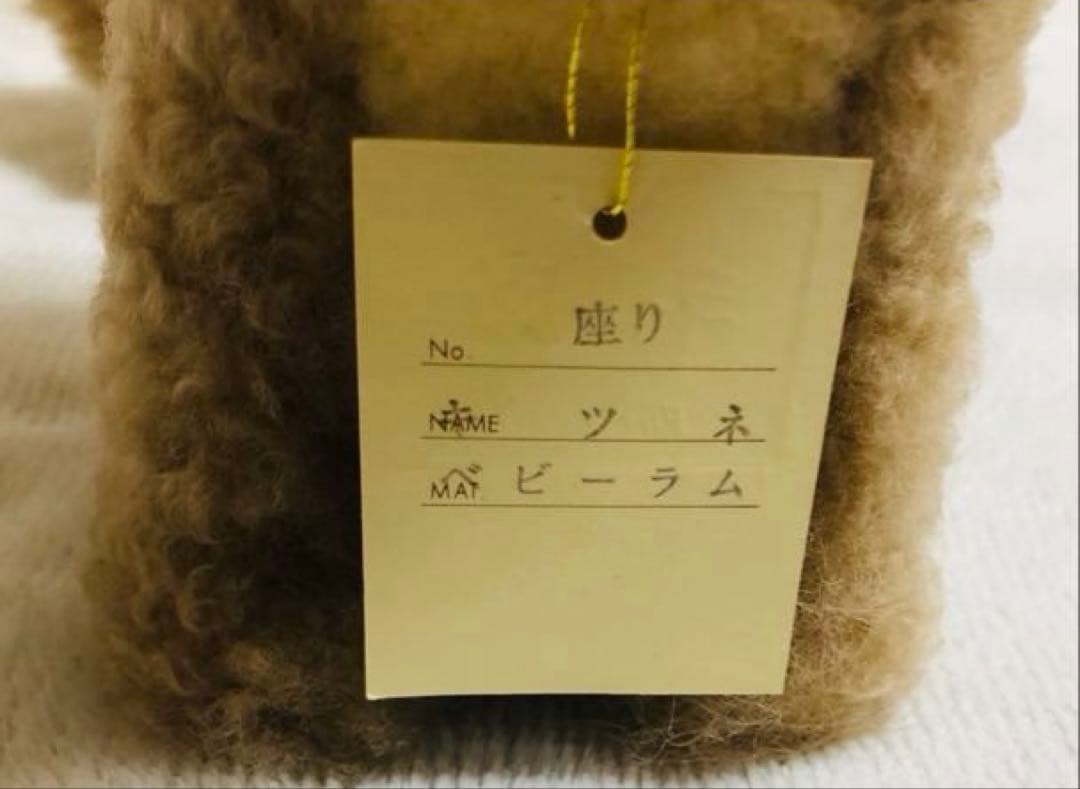 No. 座り
NAME キツネ
MAT. ベビーラム